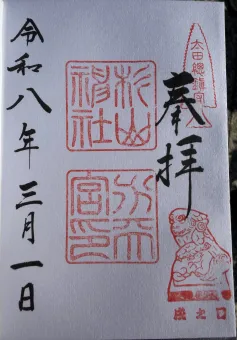 太田總鎮守
奉拝
杉山
神社
宮印
令和八年三月一日